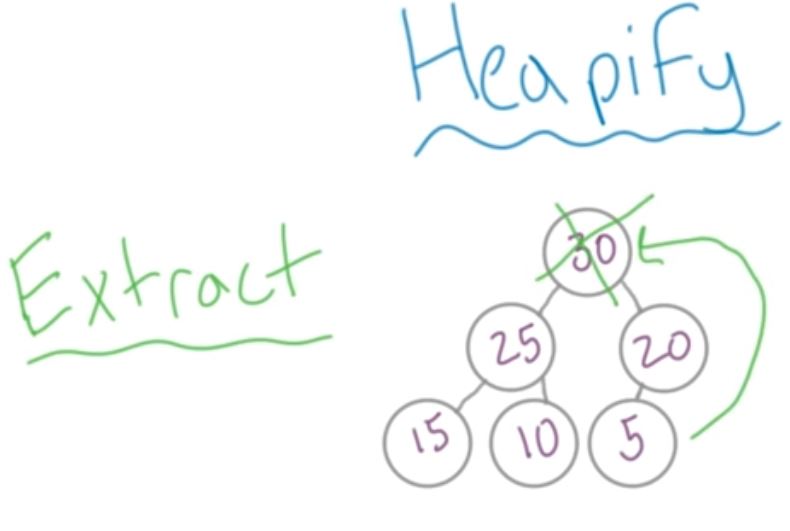 Heapify
Extract
30
25 20
15 10 5